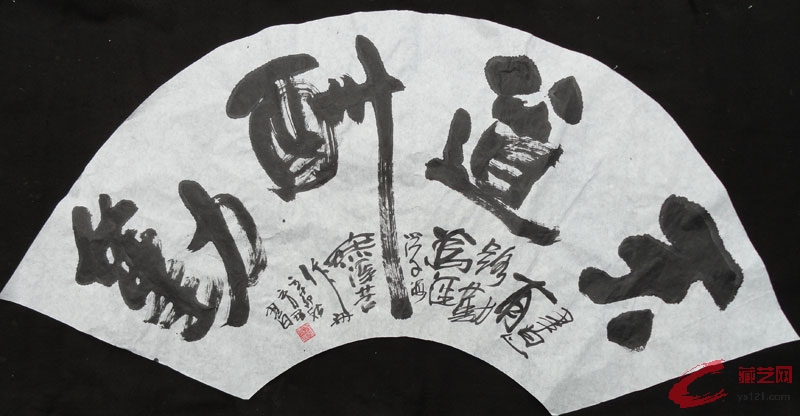 天道酬勤
書山
有
路勤
為径
学海
無涯苦
作舟
藏艺网
ys121.com